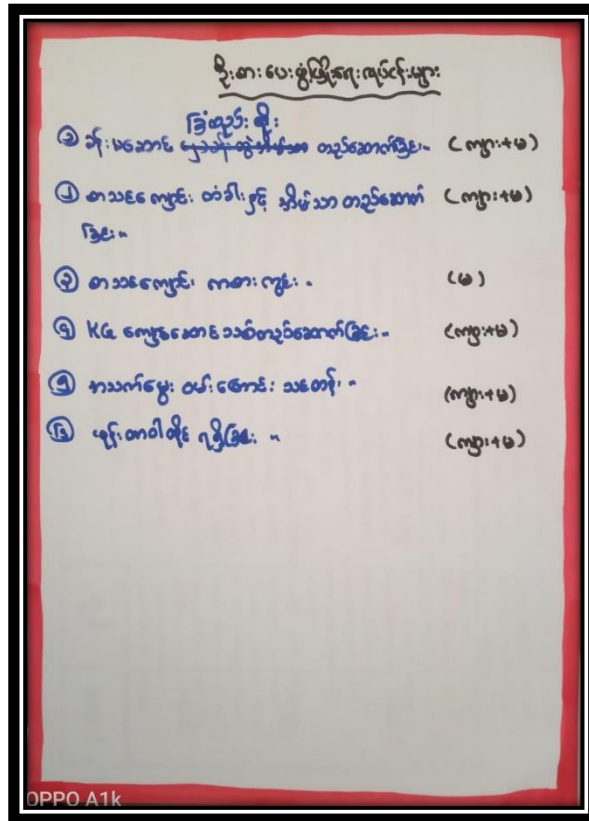 ဦးစားပေးဖွံ့ဖြိုးရေးလုပ်ငန်းများ
ခြံစည်းရိုး
၁ ဆေး တည်ဆောက်ခြင်း။ (ကျား+မ)
၂ စာသင်ကျောင်း တံခါးနှင့် အိမ်သာ တည်ဆောက် (ကျား+မ)
ခြင်း။
၃ စာသင်ကျောင်း ကစားကွင်း။ (မ)
၄ KG ကျောင်းဆောင်သစ်တည်ဆောက်ခြင်း။ (ကျား+မ)
၅ အသက်မွေး ဝမ်းကျောင်း သင်တန်း။ (ကျား+မ)
၆ ဖုန်းတာဝါတိုင် ရရှိခြင်း။ (ကျား+မ)
OPPO A1k